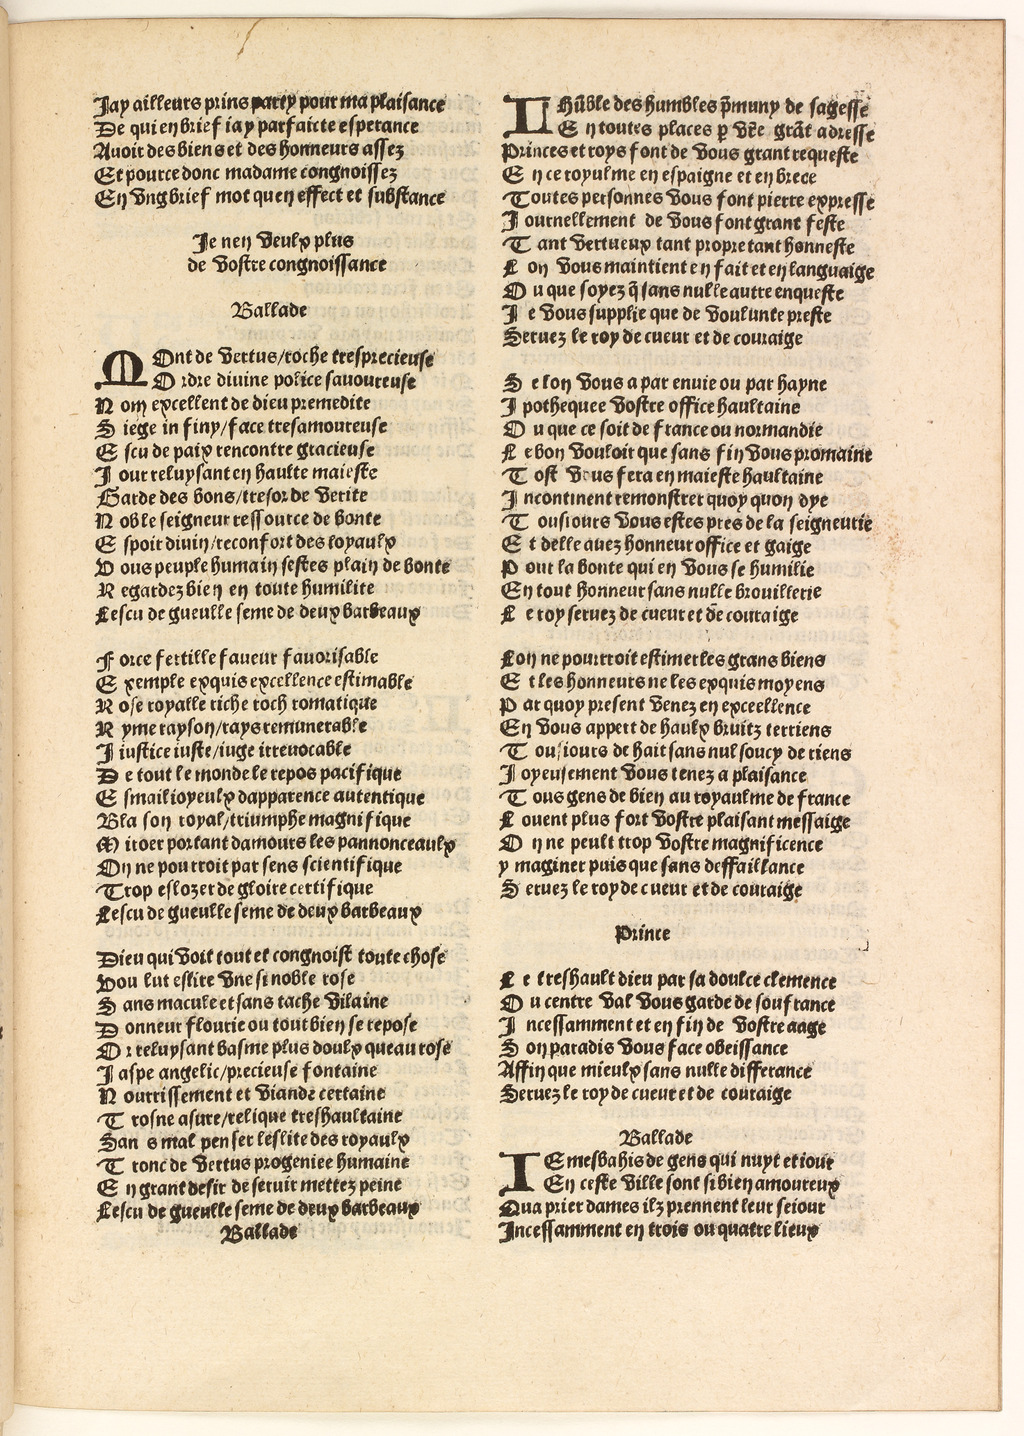 Jay ailleurs prins party pour ma plaisance
De qui en brief iay parfaicte esperance
Auoir des biens et des honneurs assez
Et pource donc madame congnoissez
En vng brief mot quen effect et substance
Je nen veulx plus
de vostre congnoissance
Ballade
MOnt de vertus/roche tresprecieuse
Ordre diuine police sauoureuse
Nom excellent de dieu premedite
Siege infiny/face tresamoureuse
Escu de paix rencontre gracieuse
Jour reluysant en haulte maieste
Garde des bons/tresor de verite
Noble seigneur ressource de bonte
Espoir diuin/reconfort des loyaulx
Vous peuple humain sestes plain de bonte
Regardez bien en toute humilite
Lescu de gueulle seme de deux barbeaux
Force fertille faueur fauorisable
Exemple exquis excellence estimable
Rose royalle riche roch romatique
Ryme rayson/rays remunerable
Justice iuste/iuge irreuocable
De tout le monde le repos pacifique
Esmail ioyeulx dapparence autentique
Blason royal/triumphe magnifique
Miroer portant damours les pannonceaulx
On ne pourroit par sens scientifique
Trop eslozer de gloire certifique
Lescu de gueulle seme de deux barbeaux
Dieu qui voit tout et congnoist toute chose
Voulut eslire vne si noble rose
Sans macule et sans tache vilaine
Donneur flourie ou tout bien se repose
Or reluysant basme plus doulx queau rose
Jaspe angelic/precieuse fontaine
Nourrissement et viande certaine
Trosne asure/relique treshaultaine
Sans mal penser leslite des royaulx
Tronc de vertus progeniee humaine
En grant desir de seruir mettez peine
Lescu de gueulle seme de deux barbeaux
Ballade
LHūble des humbles p̄muny de sagesse
En toutes places ꝑ vr̄e grāt adresse
Princes et roys font de vous grant requeste
En ce royulme en espaigne et en brece
Toutes personnes vous font pierre expresse
Journellement de vous font grant feste
Tant vertueux tant propre tant honneste
Lon vous maintient en fait et en languaige
Ou que soyez q̄ sans nulle autre enqueste
Je vous supplie que de voulunte preste
Seruez le roy de cueur et de couraige
Se lon vous a par enuie ou par hayne
Jpothequee vostre office haultaine
Ou que ce soit de france ou normandie
Le bon vouloir que sans fin vous promaine
Tost vous fera en maieste haultaine
Jncontinent remonstrer quoy quon dye
Tousiours vous estes pres de la seigneurie
Et delle auez honneur office et gaige
Pour la bonte qui en vous se humilie
En tout honneur sans nulle brouillerie
Le roy seruez de cueur et de couraige
Lon ne pourroit estimer les grans biens
Et les honneurs ne les exquis moyens
Par quoy present venez en exceellence
En vous appert de haulx bruitz terriens
Tousiours de hait sans nul soucy de riens
Joyeusement vous tenez a plaisance
Tous gens de bien au royaulme de france
Louent plus fort vostre plaisant messaige
On ne peult trop vostre magnificence
ymaginer puis que sans deffaillance
Seruez le roy de cueur et de couraige
Prince
Le treshault dieu par sa doulce clemence
Ou centre val vous garde de soufrance
Jncessamment et en fin de vostre aage
Son paradis vous face obeissance
Affin que mieulx sans nulle differance
Seruez le roy de cueur et de couraige
Ballade
IEmesbahis de gens qui nuyt et iour
En ceste ville sont si bien amoureux
Qua prier dames ilz prennent leur seiour
Jncessamment en trois ou quatre lieux